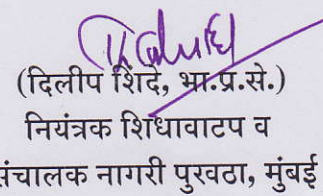 (दिलीप शिंदे, भा.प्र.से.)
नियंत्रक शिधावाटप व
संचालक नागरी पुरवठा, मुंबई